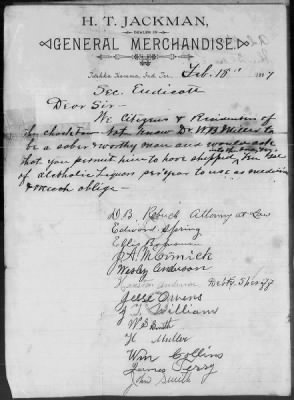 H. T. JACKMAN,
DEALER IN
GENERAL MERCHANDISE.
Tushka Homma, Ind. Ter., Feb. 18" 1897
Sec. Endicott
Dear Sir—
We Citizens & Residents of
the Choctaw Nat. know Dr. W.B. Miller to
be a sober & worthy man and would ask
that you permit him to have shipped, Ten Gal
of alcoholic Liquors per year to use as medicine
& much oblige —
D.B. Attorney at Law
Edward Spring
J.A. McCormick
Wesley Anderson
Anderson Deputy Sheriff
Jesse
William
W.S. Smith
H Miller
Wm Collins
James Terry
John Smith